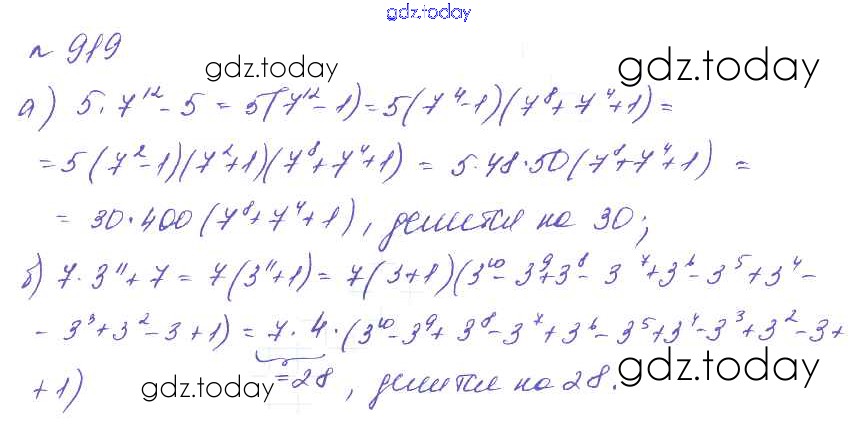 gdz.today
№ 919
gdz.today
gdz.today
а) 5·7¹² - 5 = 5(7¹² - 1) = 5(7⁴ - 1)(7⁸ + 7⁴ + 1) =
= 5(7² - 1)(7² + 1)(7⁸ + 7⁴ + 1) = 5·48·50(7⁸ + 7⁴ + 1) =
= 30·400(7⁸ + 7⁴ + 1), делится на 30;
б) 7·3¹¹ + 7 = 7(3¹¹ + 1) = 7(3 + 1)(3¹⁰ - 3⁹ + 3⁸ - 3⁷ + 3⁶ - 3⁵ + 3⁴ -
- 3³ + 3² - 3 + 1) = 7·4·(3¹⁰ - 3⁹ + 3⁸ - 3⁷ + 3⁶ - 3⁵ + 3⁴ - 3³ + 3² - 3 +
+ 1) = 28, делится на 28.
gdz.today
gdz.today